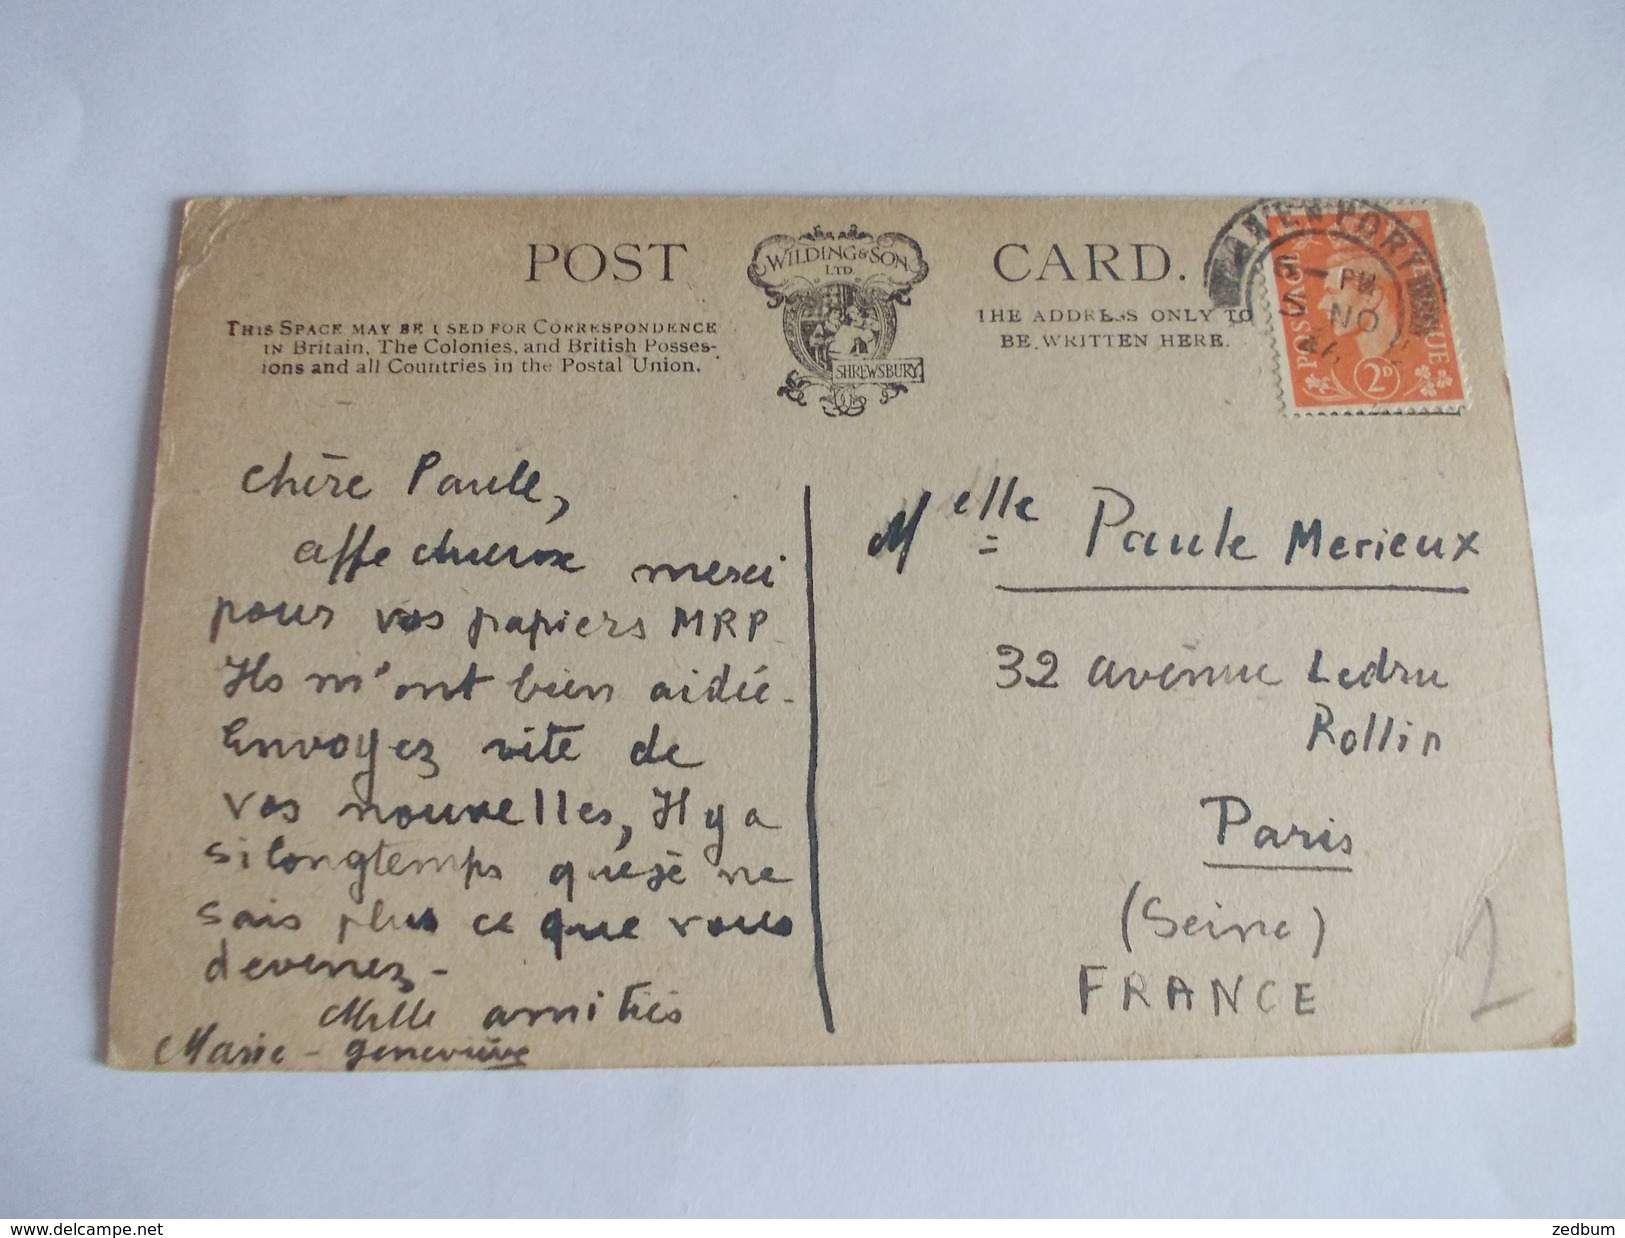 POST CARD.
WILDING & SON
LTD.
SHREWSBURY
THIS SPACE MAY BE USED FOR CORRESPONDENCE
IN Britain, The Colonies, and British Posses-
ions and all Countries in the Postal Union.
THE ADDRESS ONLY TO
BE WRITTEN HERE.
PM
NO
POSTAGE
2D
chère Paule,
affectueux merci
pour vos papiers MRP.
Ils m'ont bien aidée.
Envoyez vite de
vos nouvelles, Il y a
si longtemps que je ne
sais plus ce que vous
devenez -
Mille amitiés
Marie-geneviève
Melle Paule Merieux
32 avenue Ledru
Rollin
Paris
(Seine)
FRANCE
1
delcampe.net
zedbum